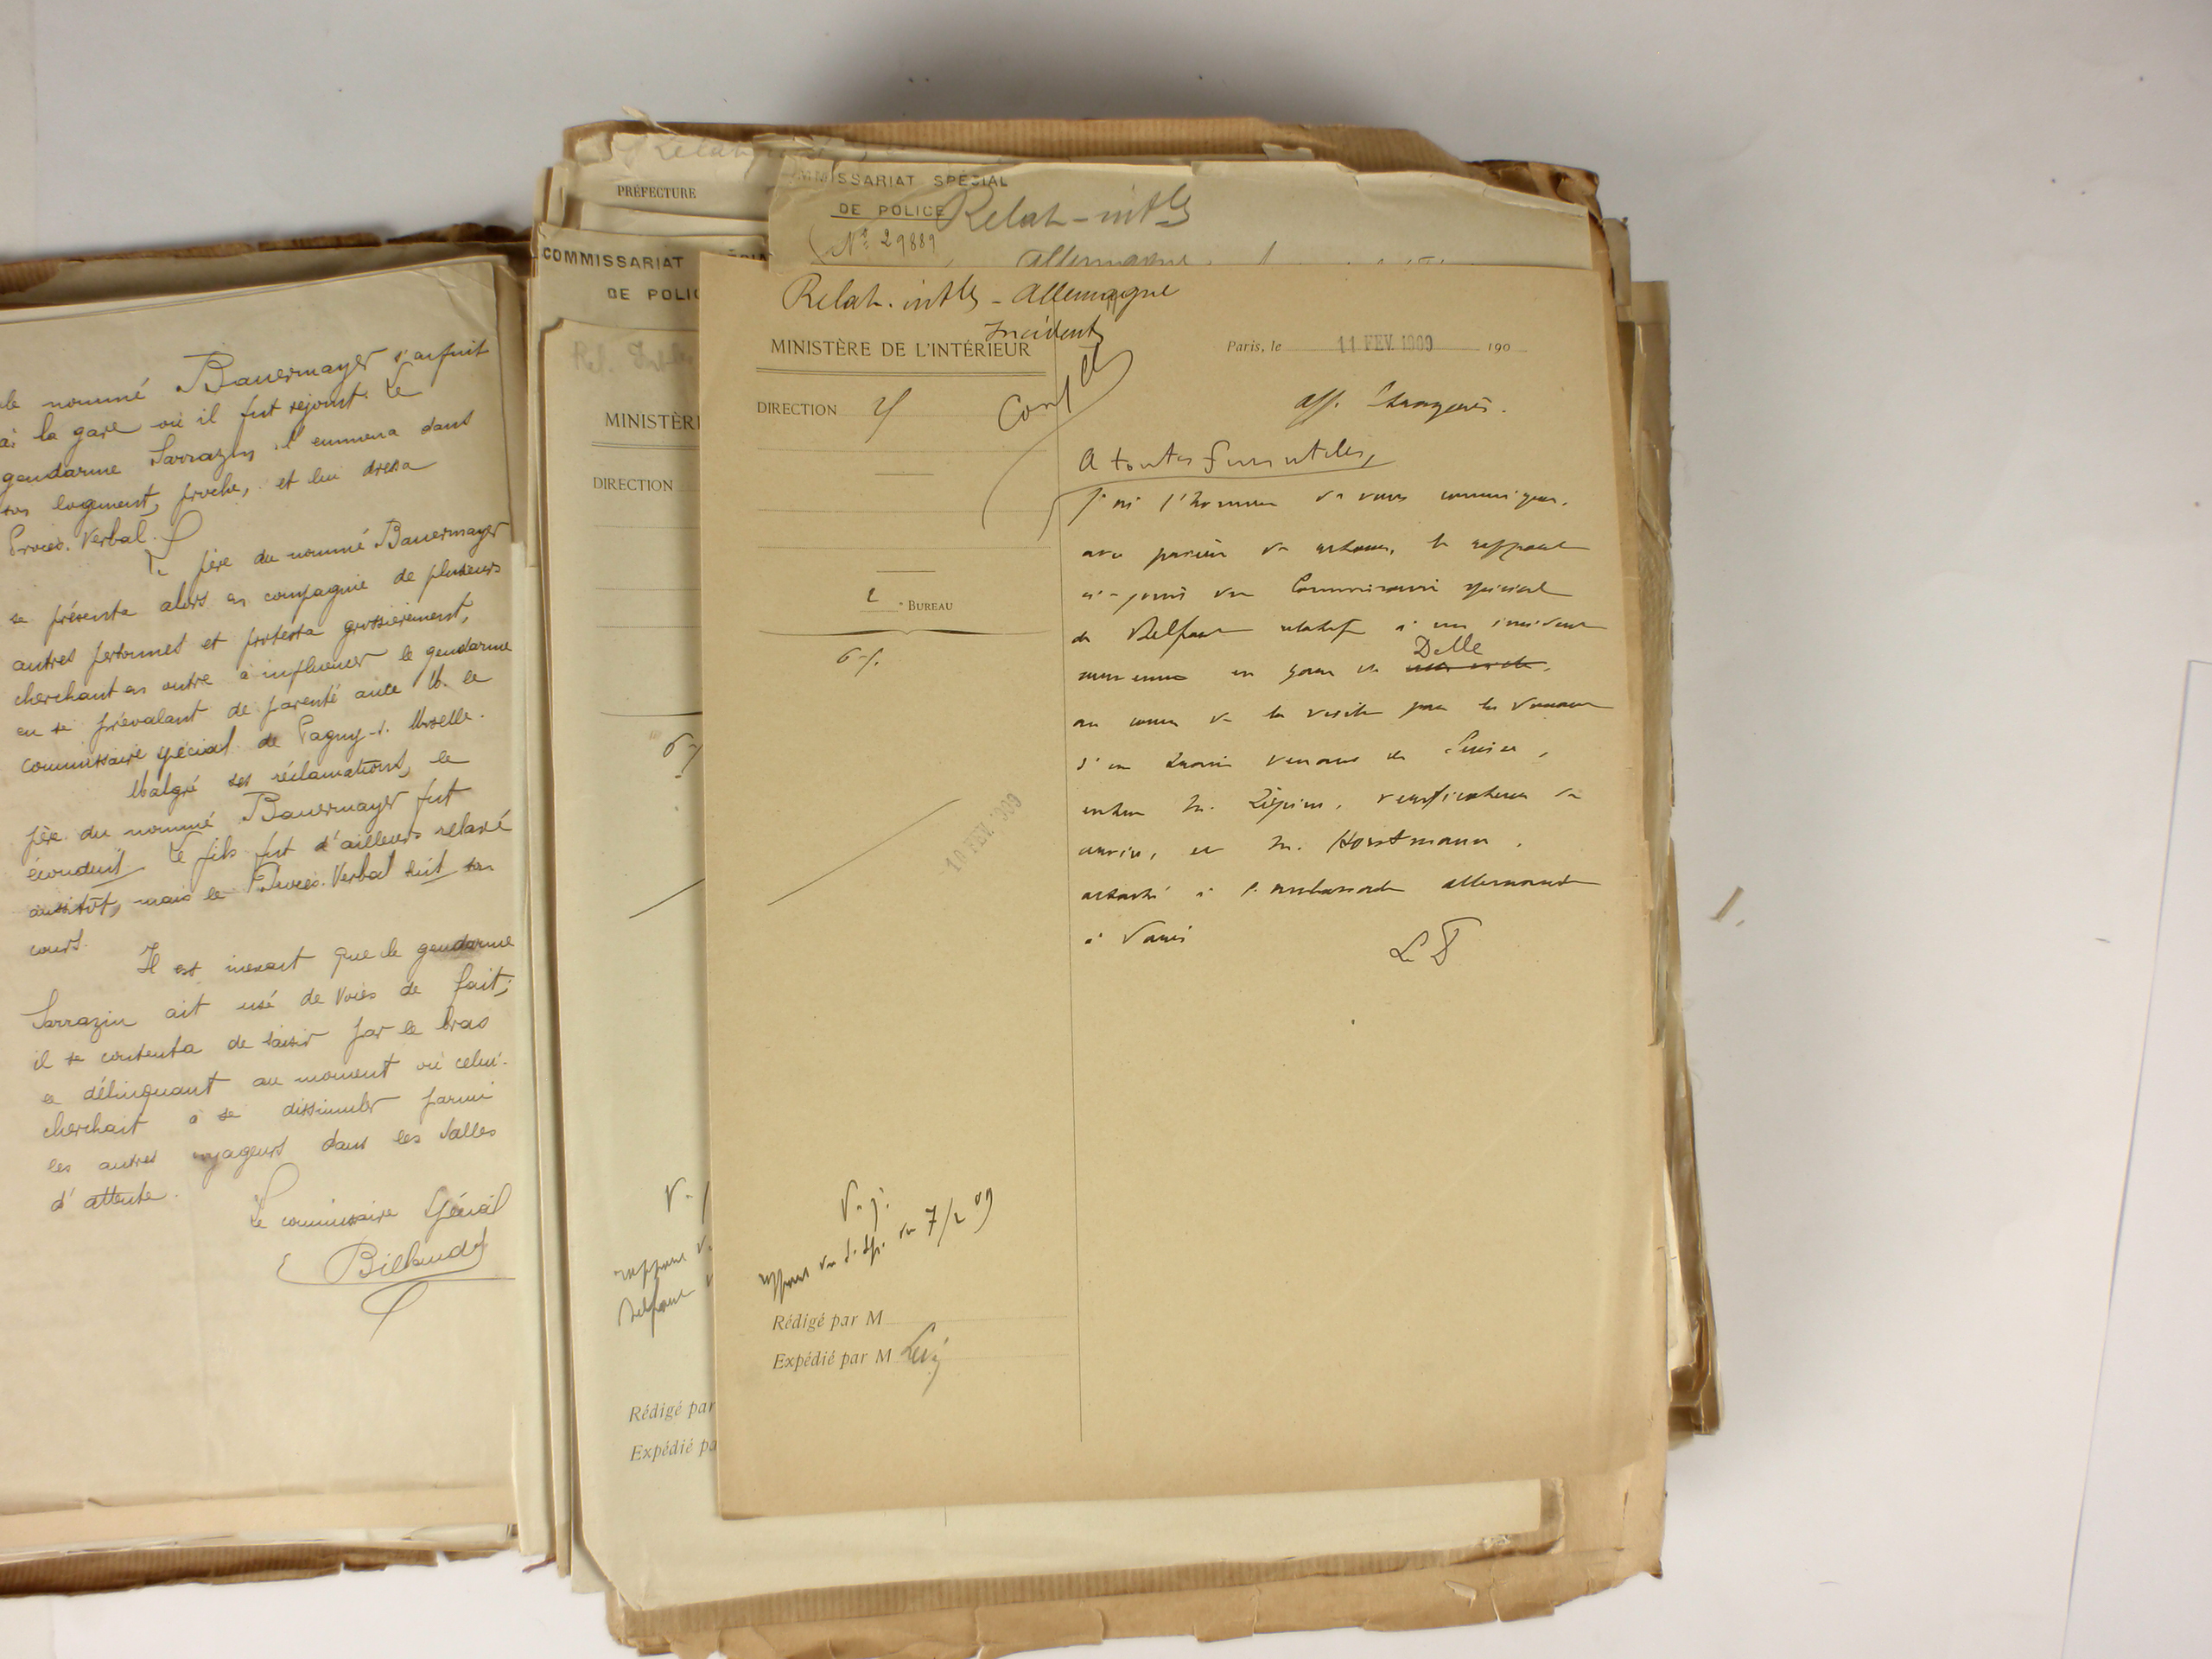 le nommé Bauermayer s'enfuit
à la gare où il fut rejoint. Le
gendarme Sarrazin l'emmena dans
son logement, proche, et lui dressa
Procès-Verbal.
Le père du nommé Bauermayer
se présenta alors en compagnie de plusieurs
autres personnes et protesta grossièrement,
cherchant en outre à influencer le gendarme
en se prévalant de parenté avec M. le
Commissaire spécial de Pagny-s. Moselle.
Malgré ses réclamations, le
père du nommé Bauermayer fut
éconduit. Le fils fut d'ailleurs relaxé
aussitôt, mais le Procès-Verbal suit son
cours.
Il est inexact que le gendarme
Sarrazin ait usé de voies de fait;
il se contenta de saisir par le bras
le délinquant au moment où celui-
cherchait à se dissimuler parmi
les autres voyageurs dans les salles
d'attente.
Le commissaire Spécial
PRÉFECTURE
COMMISSARIAT
DE POLIC
MINISTÈR
DIRECTION
rapport
Belfort
Rédigé par
Expédié pa
MMISSARIAT SPÉCIAL
DE POLICE
Relat-intles
N° 29889
Allemagne
Relat. intles - Allemagne
Incidents
MINISTÈRE DE L'INTÉRIEUR
Paris, le 11 FEV. 1909 190
DIRECTION
Conf
Aff. Etrangères.
A toutes fins utiles,
j'ai l'honneur de vous communiquer,
avec prière de retour, le rapport
ci-joint du Commissaire spécial
de Belfort relatif à un incident
survenu en gare de Delle
au cours de la visite par la douane
d'un train venant de Suisse,
entre M. Lépine, vérificateur de
service, et M. Horstmann,
attaché à l'ambassade allemande
à Paris
2e BUREAU
10 FEV. 1909
rapport du 7/2 09
Rédigé par M
Expédié par M